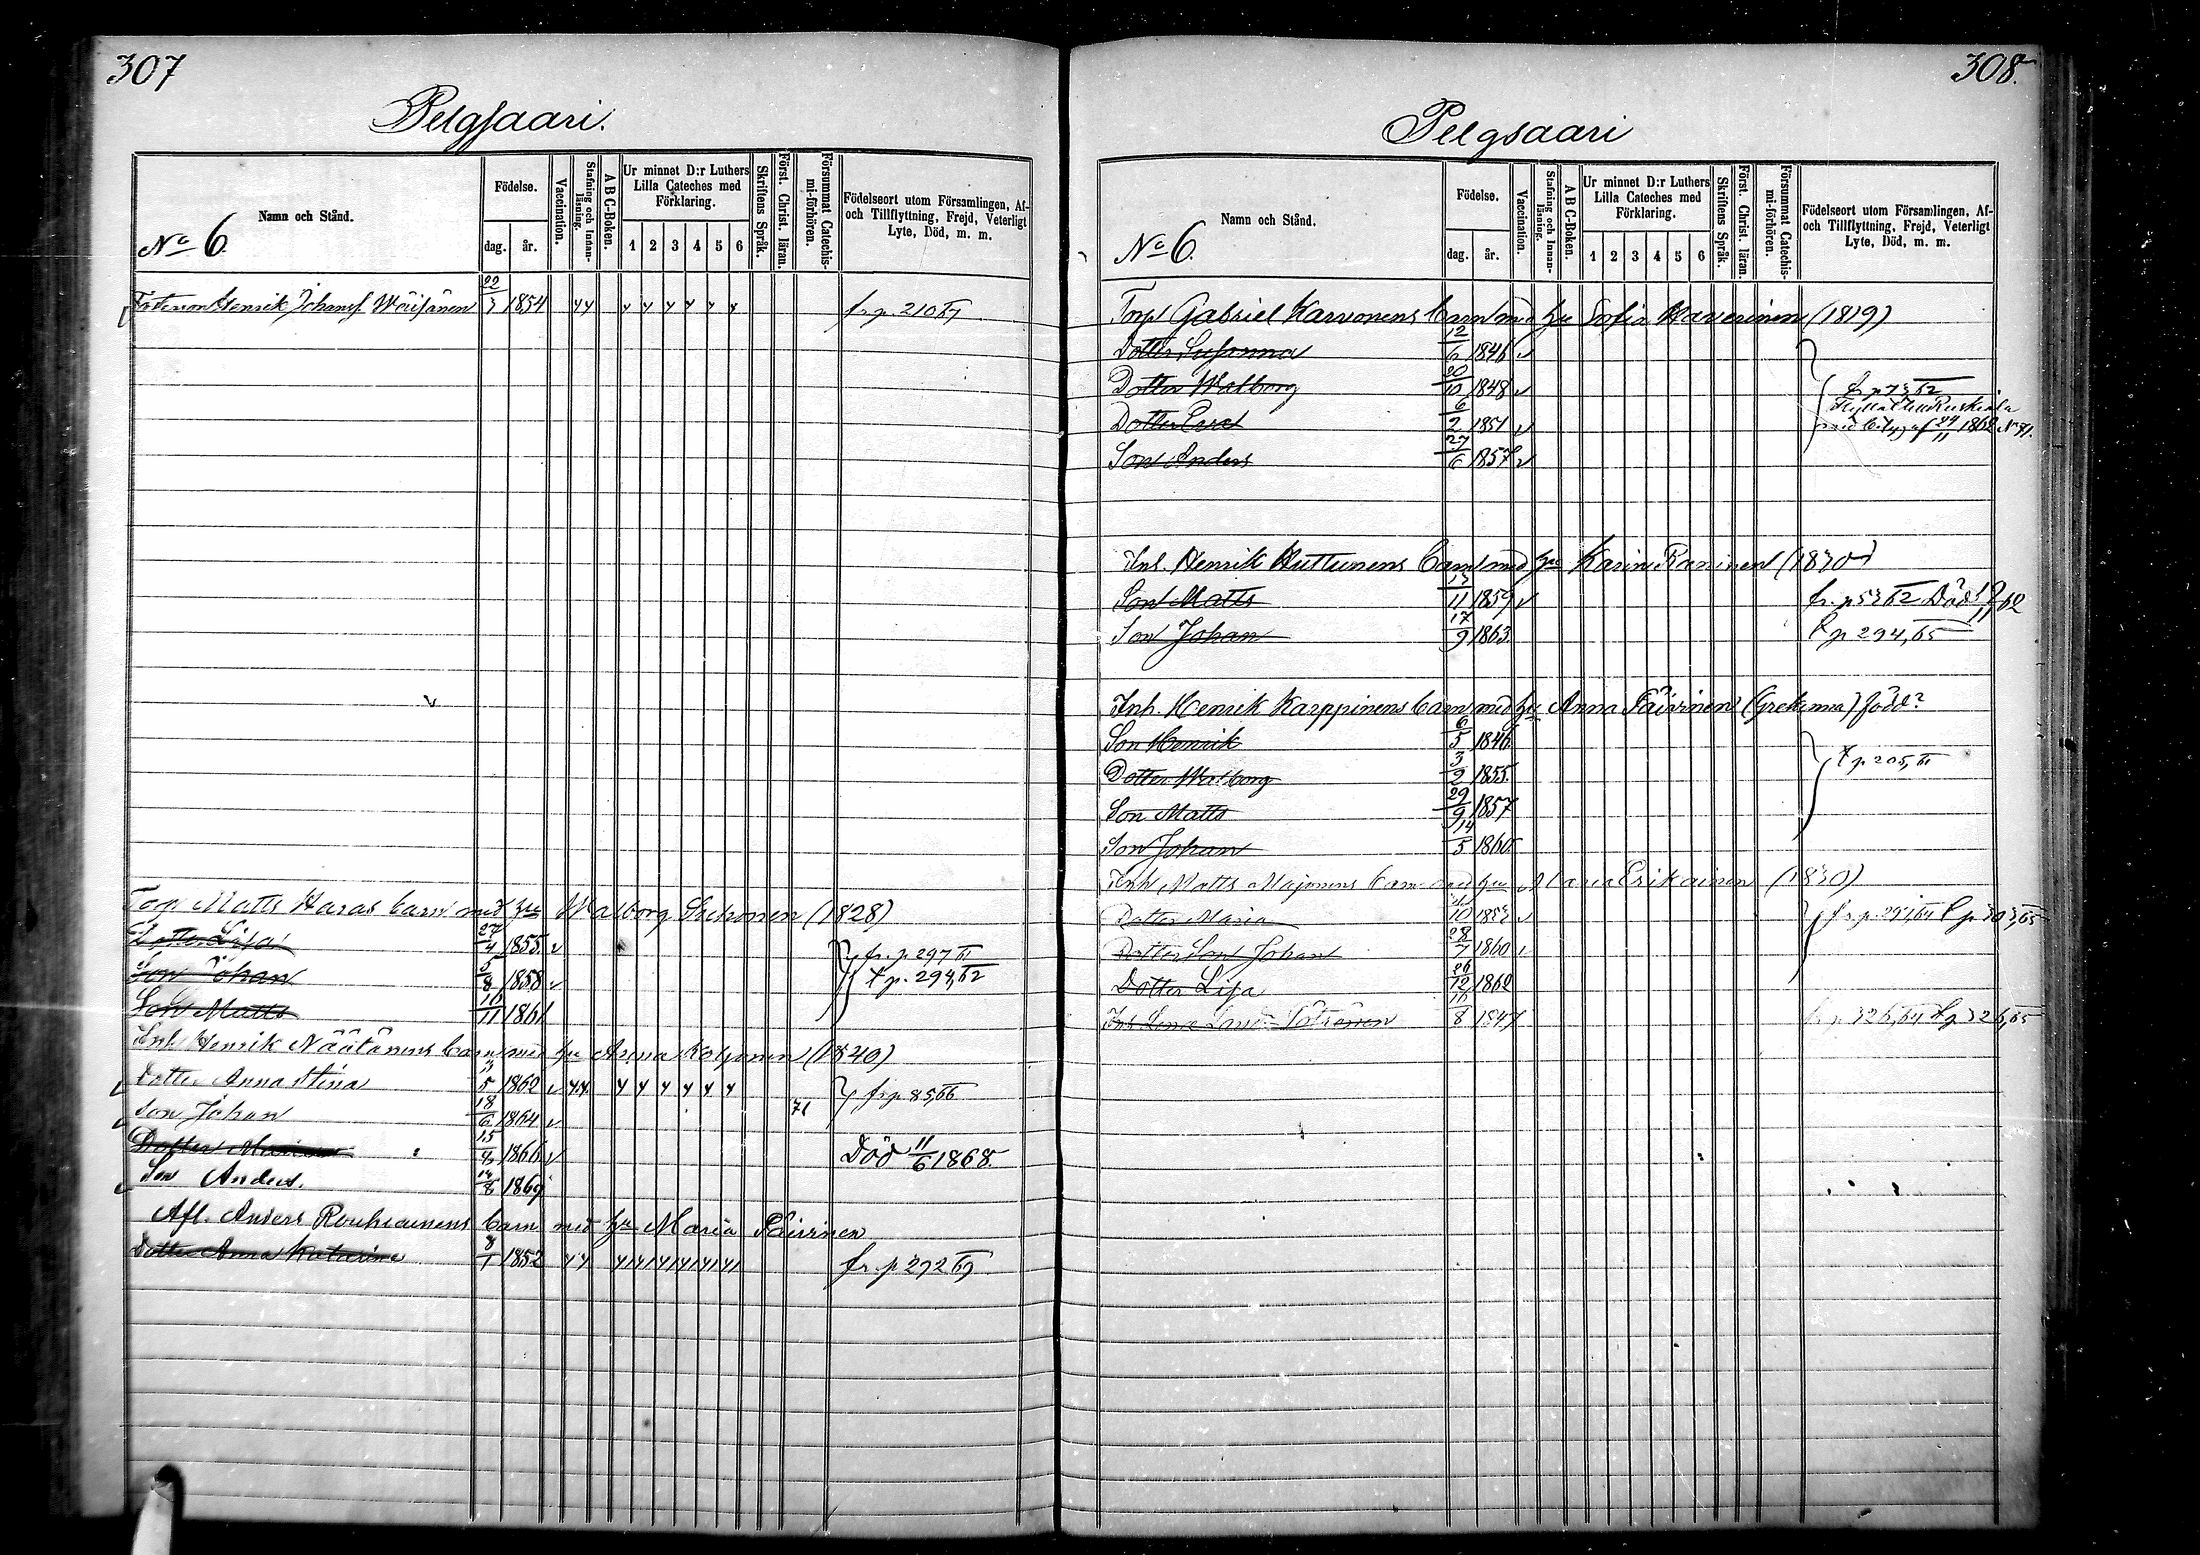 307
Pelgsaari.
Namn och Stånd.
No 6.
Födelse.
dag. år.
Vaccination.
Stafning och Innanläsning.
A B C-Boken.
Ur minnet D:r Luthers Lilla Cateches med Förklaring.
1 2 3 4 5 6
Skriftens Språk.
Först. Christ. läran.
Försummat Catechismi-förhören.
Födelseort utom Församlingen, Af- och Tillflyttning, Frejd, Veterligt Lyte, Död, m. m.
Fosterson Henrik Johanss. Wäisänen 22/3 1854 fr. p. 210
Matts Haras barn med hu Walborg (1828)
Dotter Lisa 27/4 1855 fr. p. 297
Son Johan 5/8 1858 t p. 294, 62
Son Matts 11 1861
Inh. Henrik Näätänens barn med hu Anna (1840)
Dotter Anna Stina 3/5 1862 fr p 85, 66
Son Johan 18/6 1864 71
Dotter Maria 15 1866 Död 11/6 1868.
Son Anders. 14/8 1869
Afl. Anders Rouhiainens barn med hu Maria Päivinen
Dotter Anna Katarina 8/1 1852 fr. p 272
308.
Pelgsaari
Namn och Stånd.
No 6.
Födelse.
dag. år.
Vaccination.
Stafning och Innanläsning.
A B C-Boken.
Ur minnet D:r Luthers Lilla Cateches med Förklaring.
1 2 3 4 5 6
Skriftens Språk.
Först. Christ. läran.
Försummat Catechismi-förhören.
Födelseort utom Församlingen, Af- och Tillflyttning, Frejd, Veterligt Lyte, Död, m. m.
Torp Gabriel Karvonens barn med hu Sofia Kaverinen (1819)
Dotter Susanna 12/6 1846
Dotter Walborg 20/10 1848 fr p 73 62
Dotter Eva 6/2 1851 Flyttat till Ruskiala
med betyg af 24/11 1862 No 81.
Son Anders 27/6 1857
Inh. Henrik Huttunens barn med hu Karin Raninen (1830)
Son Matts 13/11 1859 fr. p 53 62 Död
Son Johan 17/9 1863 t p 294, 65
Inh. Henrik Karppinens barn med hu Anna Päivinen (Grekinna) född?
Son Henrik 6/5 1846 t p 205, 61
Dotter Walborg 3/2 1855
Son Matts 29/9 1857
Son Johan 14/5 1860
Inh Matts Majonens barn med hu Maria Erikainen (1830)
Dotter Maria 10 1853 fr. p. 297, 64 t p 303, 65
Dotter Son Johan 28/7 1860
Dotter Lisa 26/12 1862
Inh Lena 16/8 1847 fr. p 326, 64 t p 326, 65